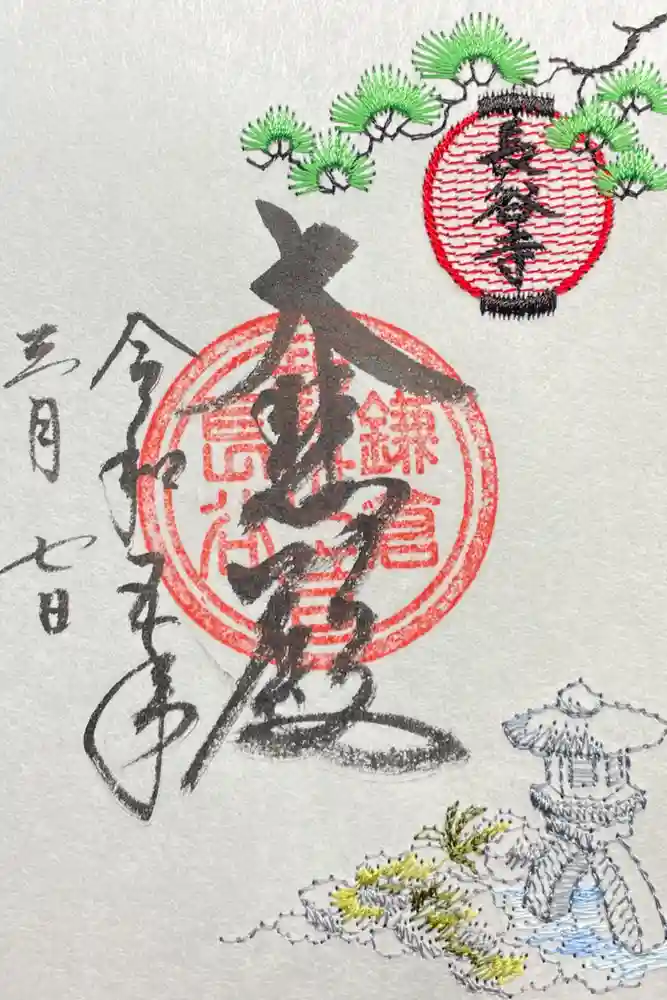 長谷寺
大悲殿
鎌倉
長谷
令和五年
三月七日